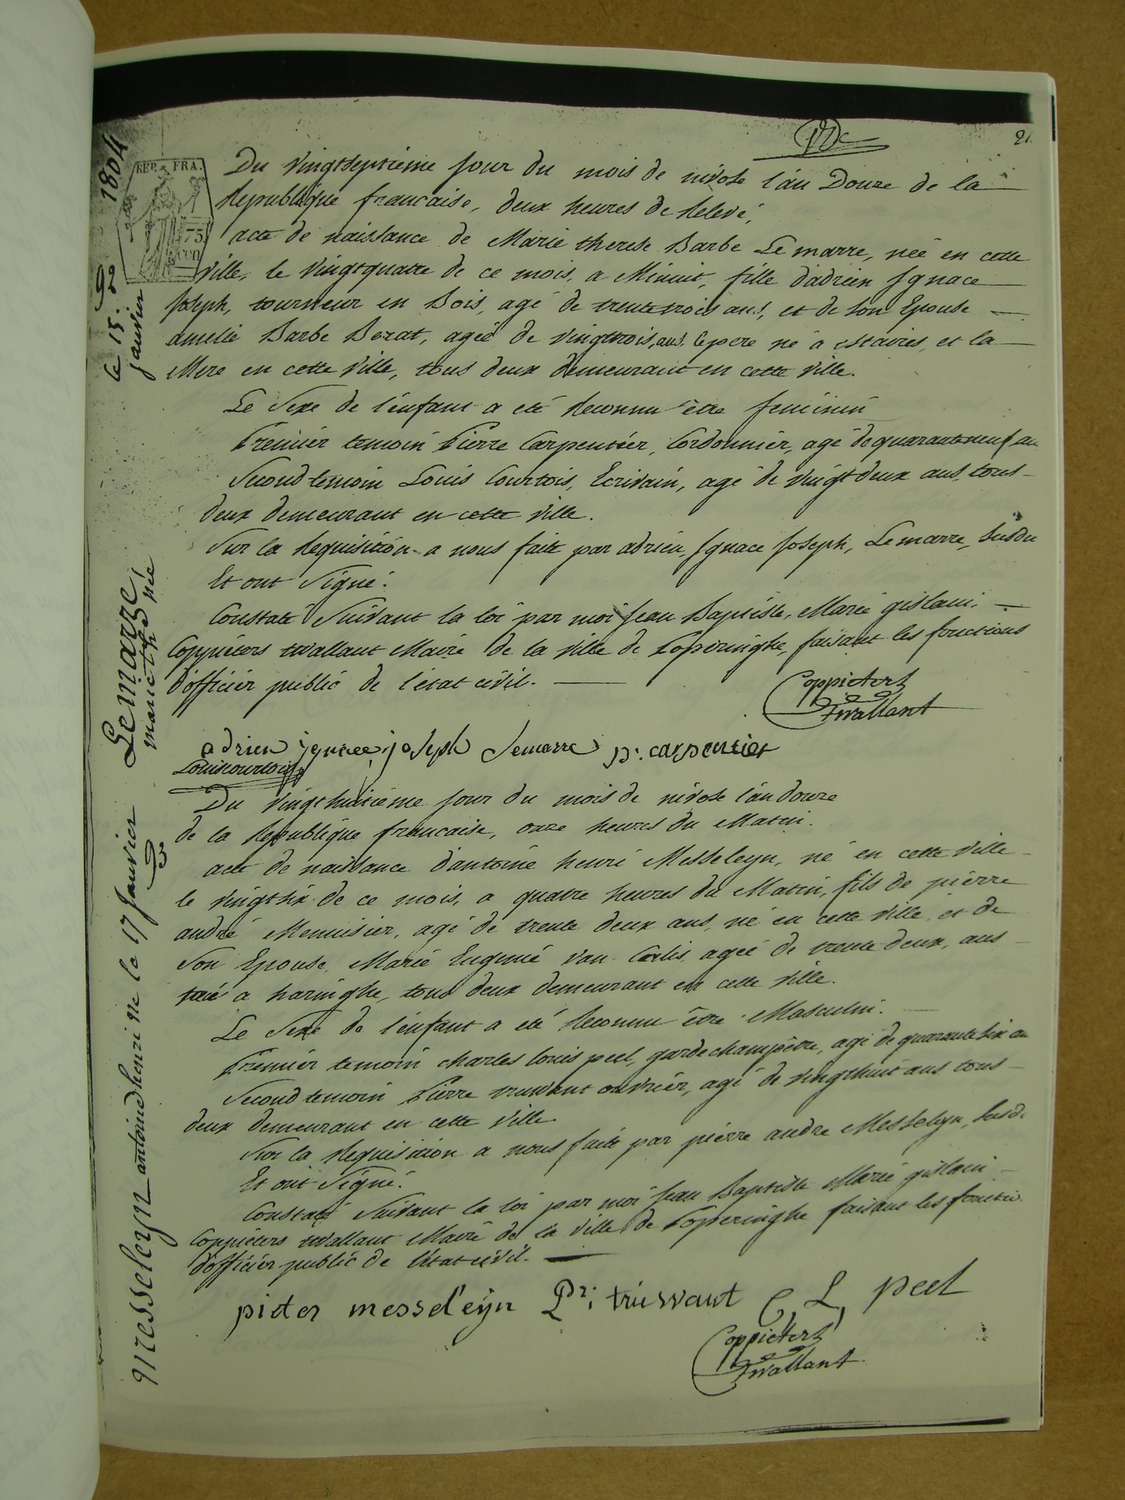 21
1804
REP. FRA.
75
Du vingtseptième jour du mois de nivose l'an Douze de la
Republique francaise, deux heures de Relevé,
acte de naissance de Marie therese Barbe Lemarre, née en cette
ville, le vingtquatre de ce mois, a Minuit, fille d'adrien Ignace
Joseph, tourneur en Bois, agé de trentetrois ans, et de son Epouse
amelie Barbe Borat, agée de vingttrois ans, le pere né à Estaires, et la
Mere en cette ville, tous deux demeurant en cette ville.
Le Sexe de l'enfant a eté Reconnu être feminin
Premier temoin Pierre Carpentier, Cordonnier, agé de quaranteneuf an
Second temoin Louis Courtois, Ecrivain, agé de vingt deux ans, tous
deux demeurant en cette ville.
Sur la Requisition a nous faite par adrien, Ignace Joseph, Lemarre, susdit
Et ont Signé.
Constaté Suivant la loi par moi Jean Baptiste, Marie gislain,
Coppieters twallant Maire de la ville de Poperinghe, faisant les fonctions
d'officier public de l'état civil.
Coppieters
twallant
adrien ignace joseph Lemarre p: carpentier
Louis courtois
92
le 15
janvier
Lemarre,
marie thé née
Du vingthuitième jour du mois de nivose l'an douze
de la Republique francaise, onze heures du Matin.
acte de naissance d'antoine henri Messeleyn, né en cette ville
le vingtsix de ce mois, a quatre heures du Matin, fils de pierre
andré Menuisier, agé de trente deux ans, né en cette ville et de
Son Epouse Marie Eugenie van Cælis, agée de trente deux, ans
née a haringhe, tous deux demeurant en cette ville.
Le Sexe de l'enfant a eté Reconnu être Masculin.
Premier temoin charles louis peel, gardechampêtre, agé de quarantesix an
Second temoin Pierre truwant ouvrier, agé de vingthuit ans tous
deux demeurant en cette ville
Sur la Requisition a nous faite par pierre andre Messelyn, Susd.
Et ont Signé.
Constaté Suivant la loi par moi Jean Baptiste Marie gislain
Coppieters twallant Maire de la ville de Poperinghe faisant les fonctio
d'officier public de l'état civil.
pieter messeleijn Pr: truwant C, L, peel
Coppieters
twallant
93
Messeleyn antoine henri né le 17 janvier